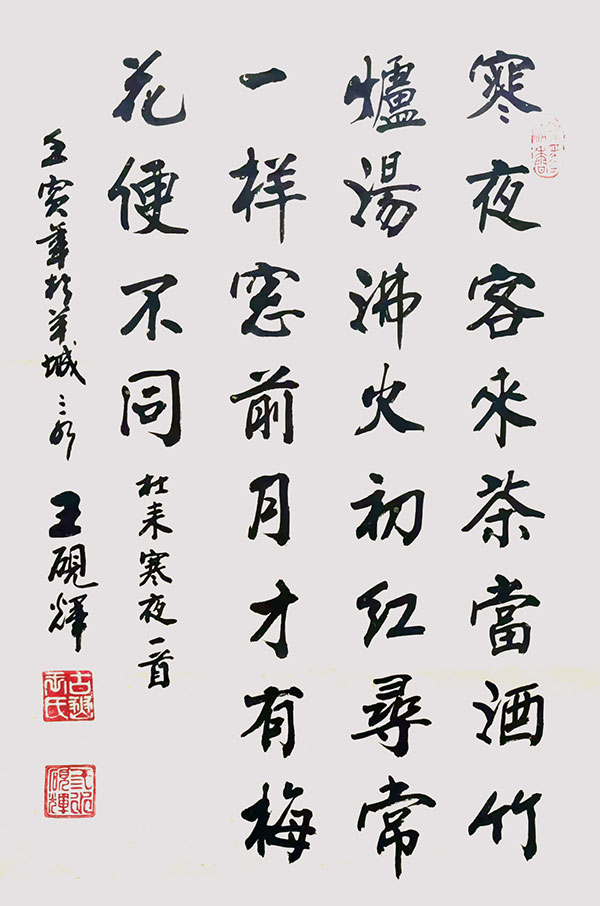 寒夜客来茶當酒竹
爐湯沸火初红尋常
一样窓前月才有梅
花便不同
杜耒寒夜一首
壬寅年於羊城
王硯輝